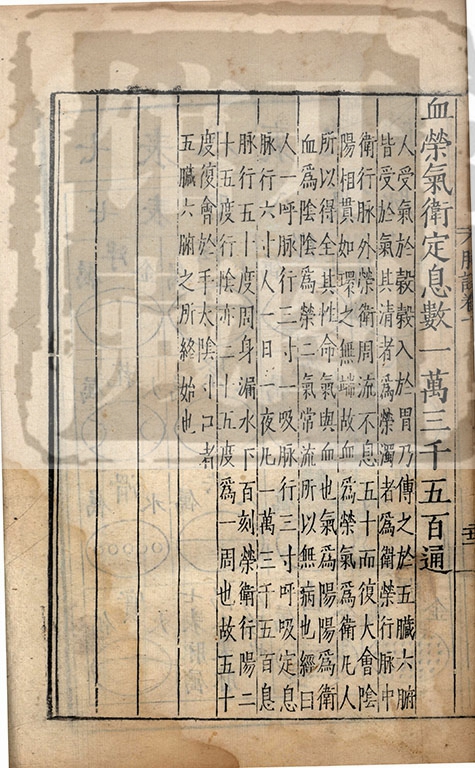 血榮氣衛定息數一萬三千五百通
人受氣於穀穀入於胃乃傳之於五臟六腑
皆受於氣其清者爲榮濁者爲衛榮行脉中
衛行脉外榮衛周流不息五十而復大會陰
陽相貫如環之無端故血爲榮氣爲衛凡人
所以得全其性命氣與血也氣爲陽陽爲衛
血爲陰陰爲榮二氣常流所以無病也經曰
人一呼脉行三寸一吸脉行三寸呼吸定息
脉行六寸人一日一夜凡一萬三千五百息
脉行五十度周身漏水下百刻榮衛行陽二
十五度行陰亦二十五度爲一周也故五十
度復會於手太陰寸口者
五臟六腑之所終始也